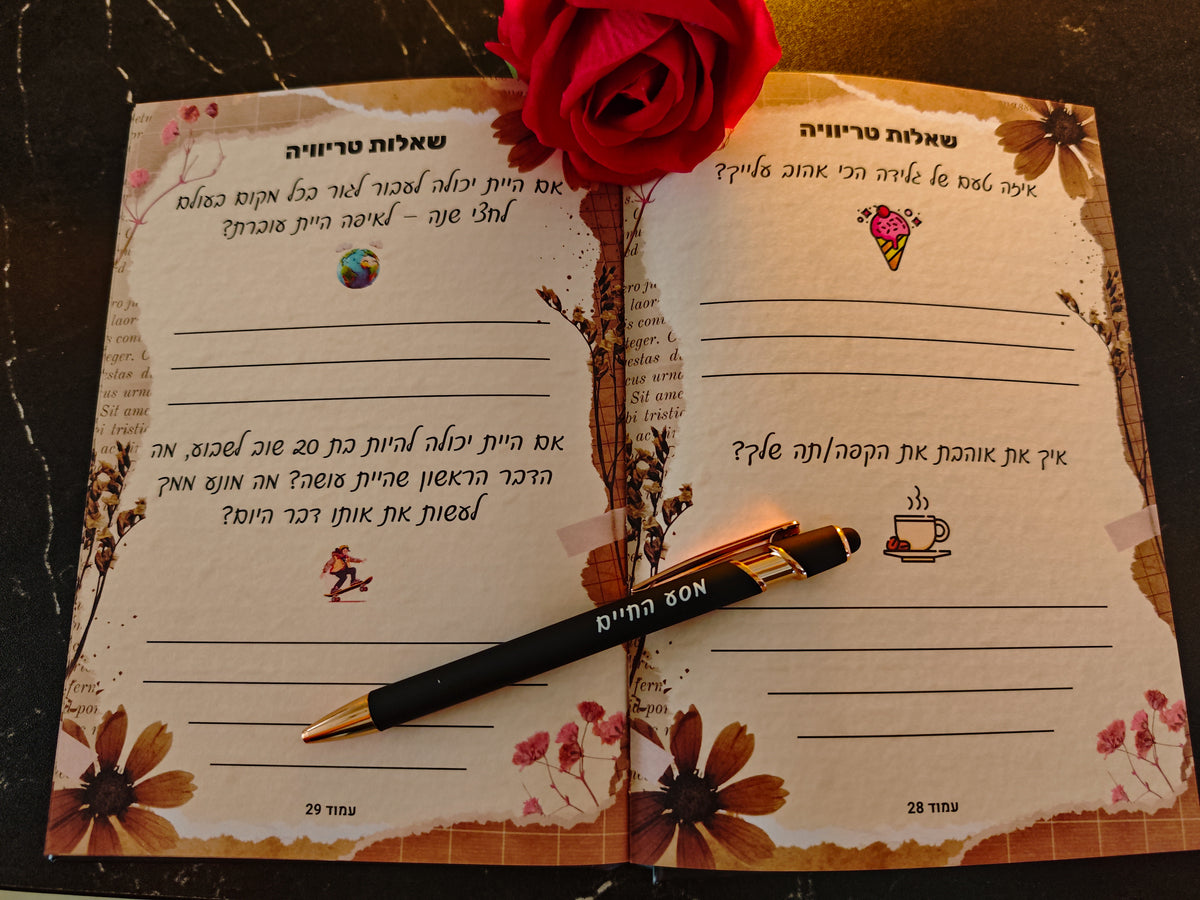 שאלות טריוויה
איזה טעם של גלידה הכי אהוב עלייך?
איך את אוהבת את הקפה/תה שלך?
עמוד 28
שאלות טריוויה
אם היית יכולה לעבור לגור בכל מקום בעולם
לחצי שנה – לאיפה היית עוברת?
אם היית יכולה להיות בת 20 שוב לשבוע, מה
הדבר הראשון שהיית עושה? מה מונע ממך
לעשות את אותו דבר היום?
עמוד 29
מסע החיים